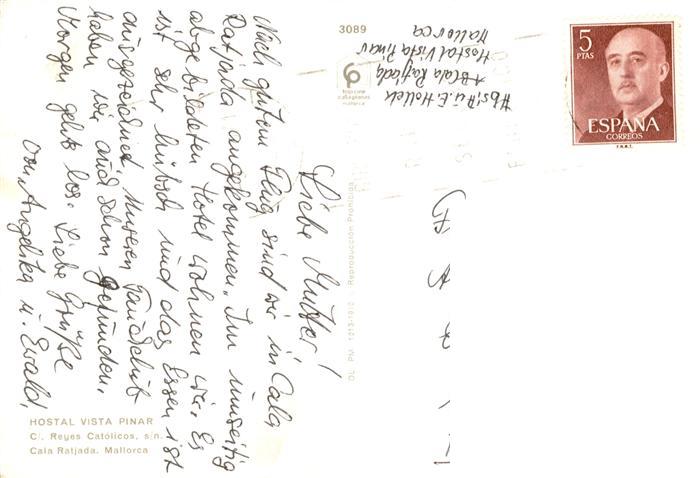 Liebe Mutter!
Nach gutem Flug sind wir in Cala
Ratjada angekommen. Im umseitig
abgebildeten Hotel wohnen wir. Es
ist sehr hübsch und das Essen ist
ausgezeichnet. Unseren Tauchclub
haben wir auch schon gefunden.
Morgen gehts los. Liebe Grüße
von Angelika u. Ewald.
HOSTAL VISTA PINAR
C/. Reyes Católicos, s/n.
Cala Ratjada. Mallorca
3089
mallorca
DL PM 1213-1970 Reproducción Prohibida
Cala Ratjada
Hostal Vista Pinar
Mallorca
5
PTAS
ESPAÑA
CORREOS
F.N.M.T.